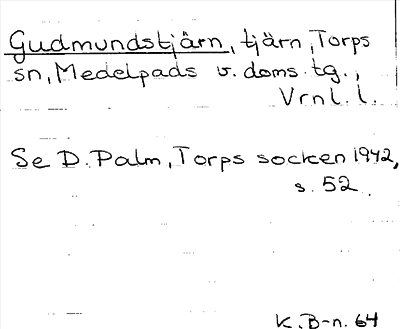 Gudmundstjärn, tjärn, Torps
sn, Medelpads v. doms. tg.,
Vrnl. l.
Se D. Palm, Torps socken 1942,
s. 52.
K. B-n. 64